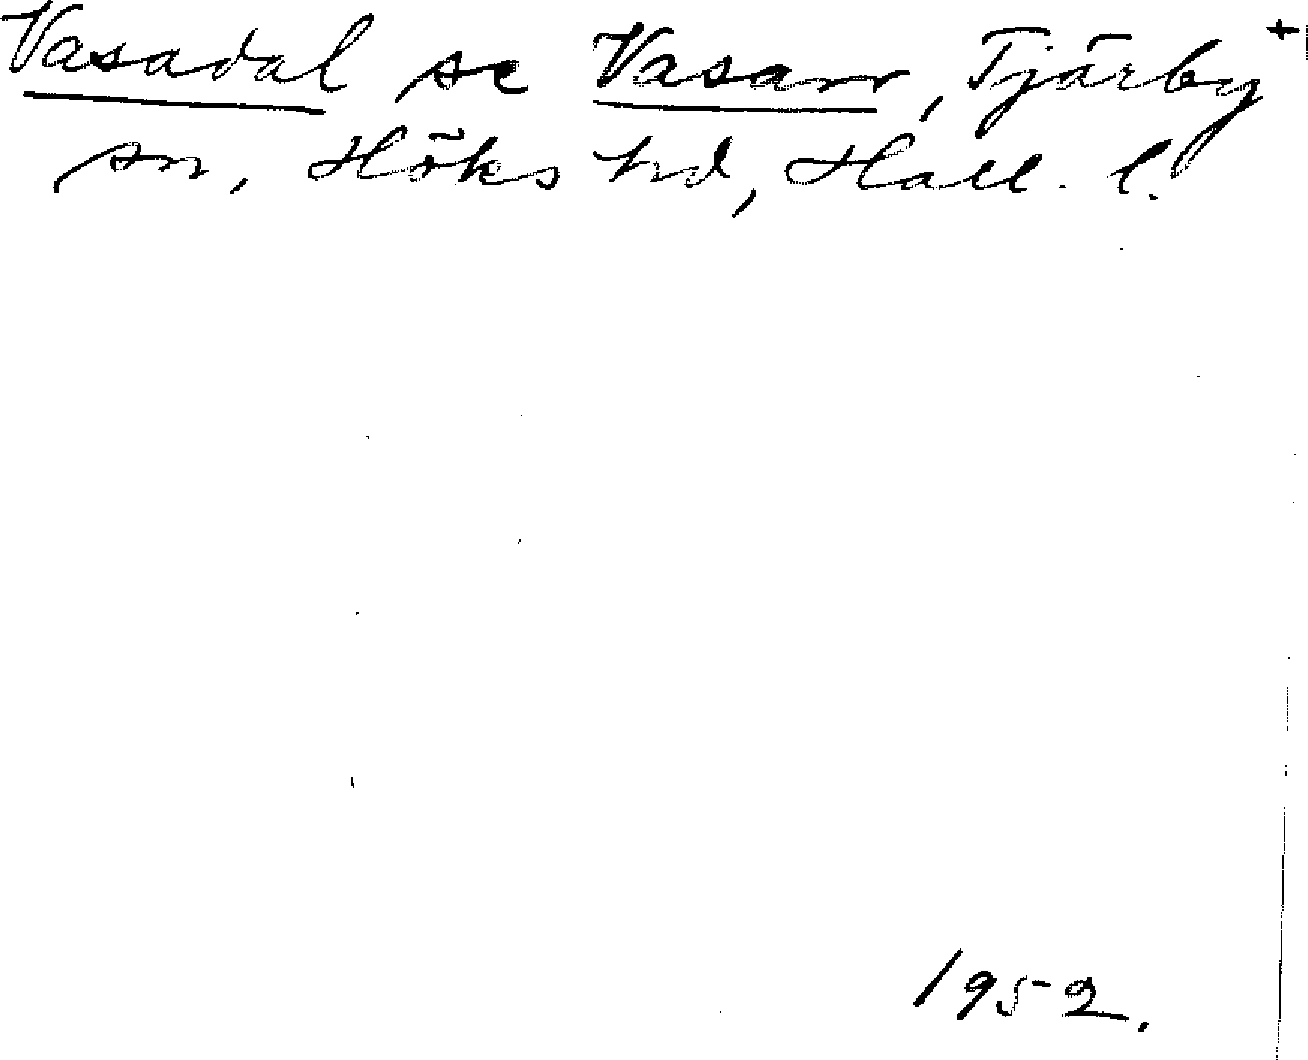 Vasadal se Vasarr, Tjärby +
sn, Höks hd, Hall. l.
1952.